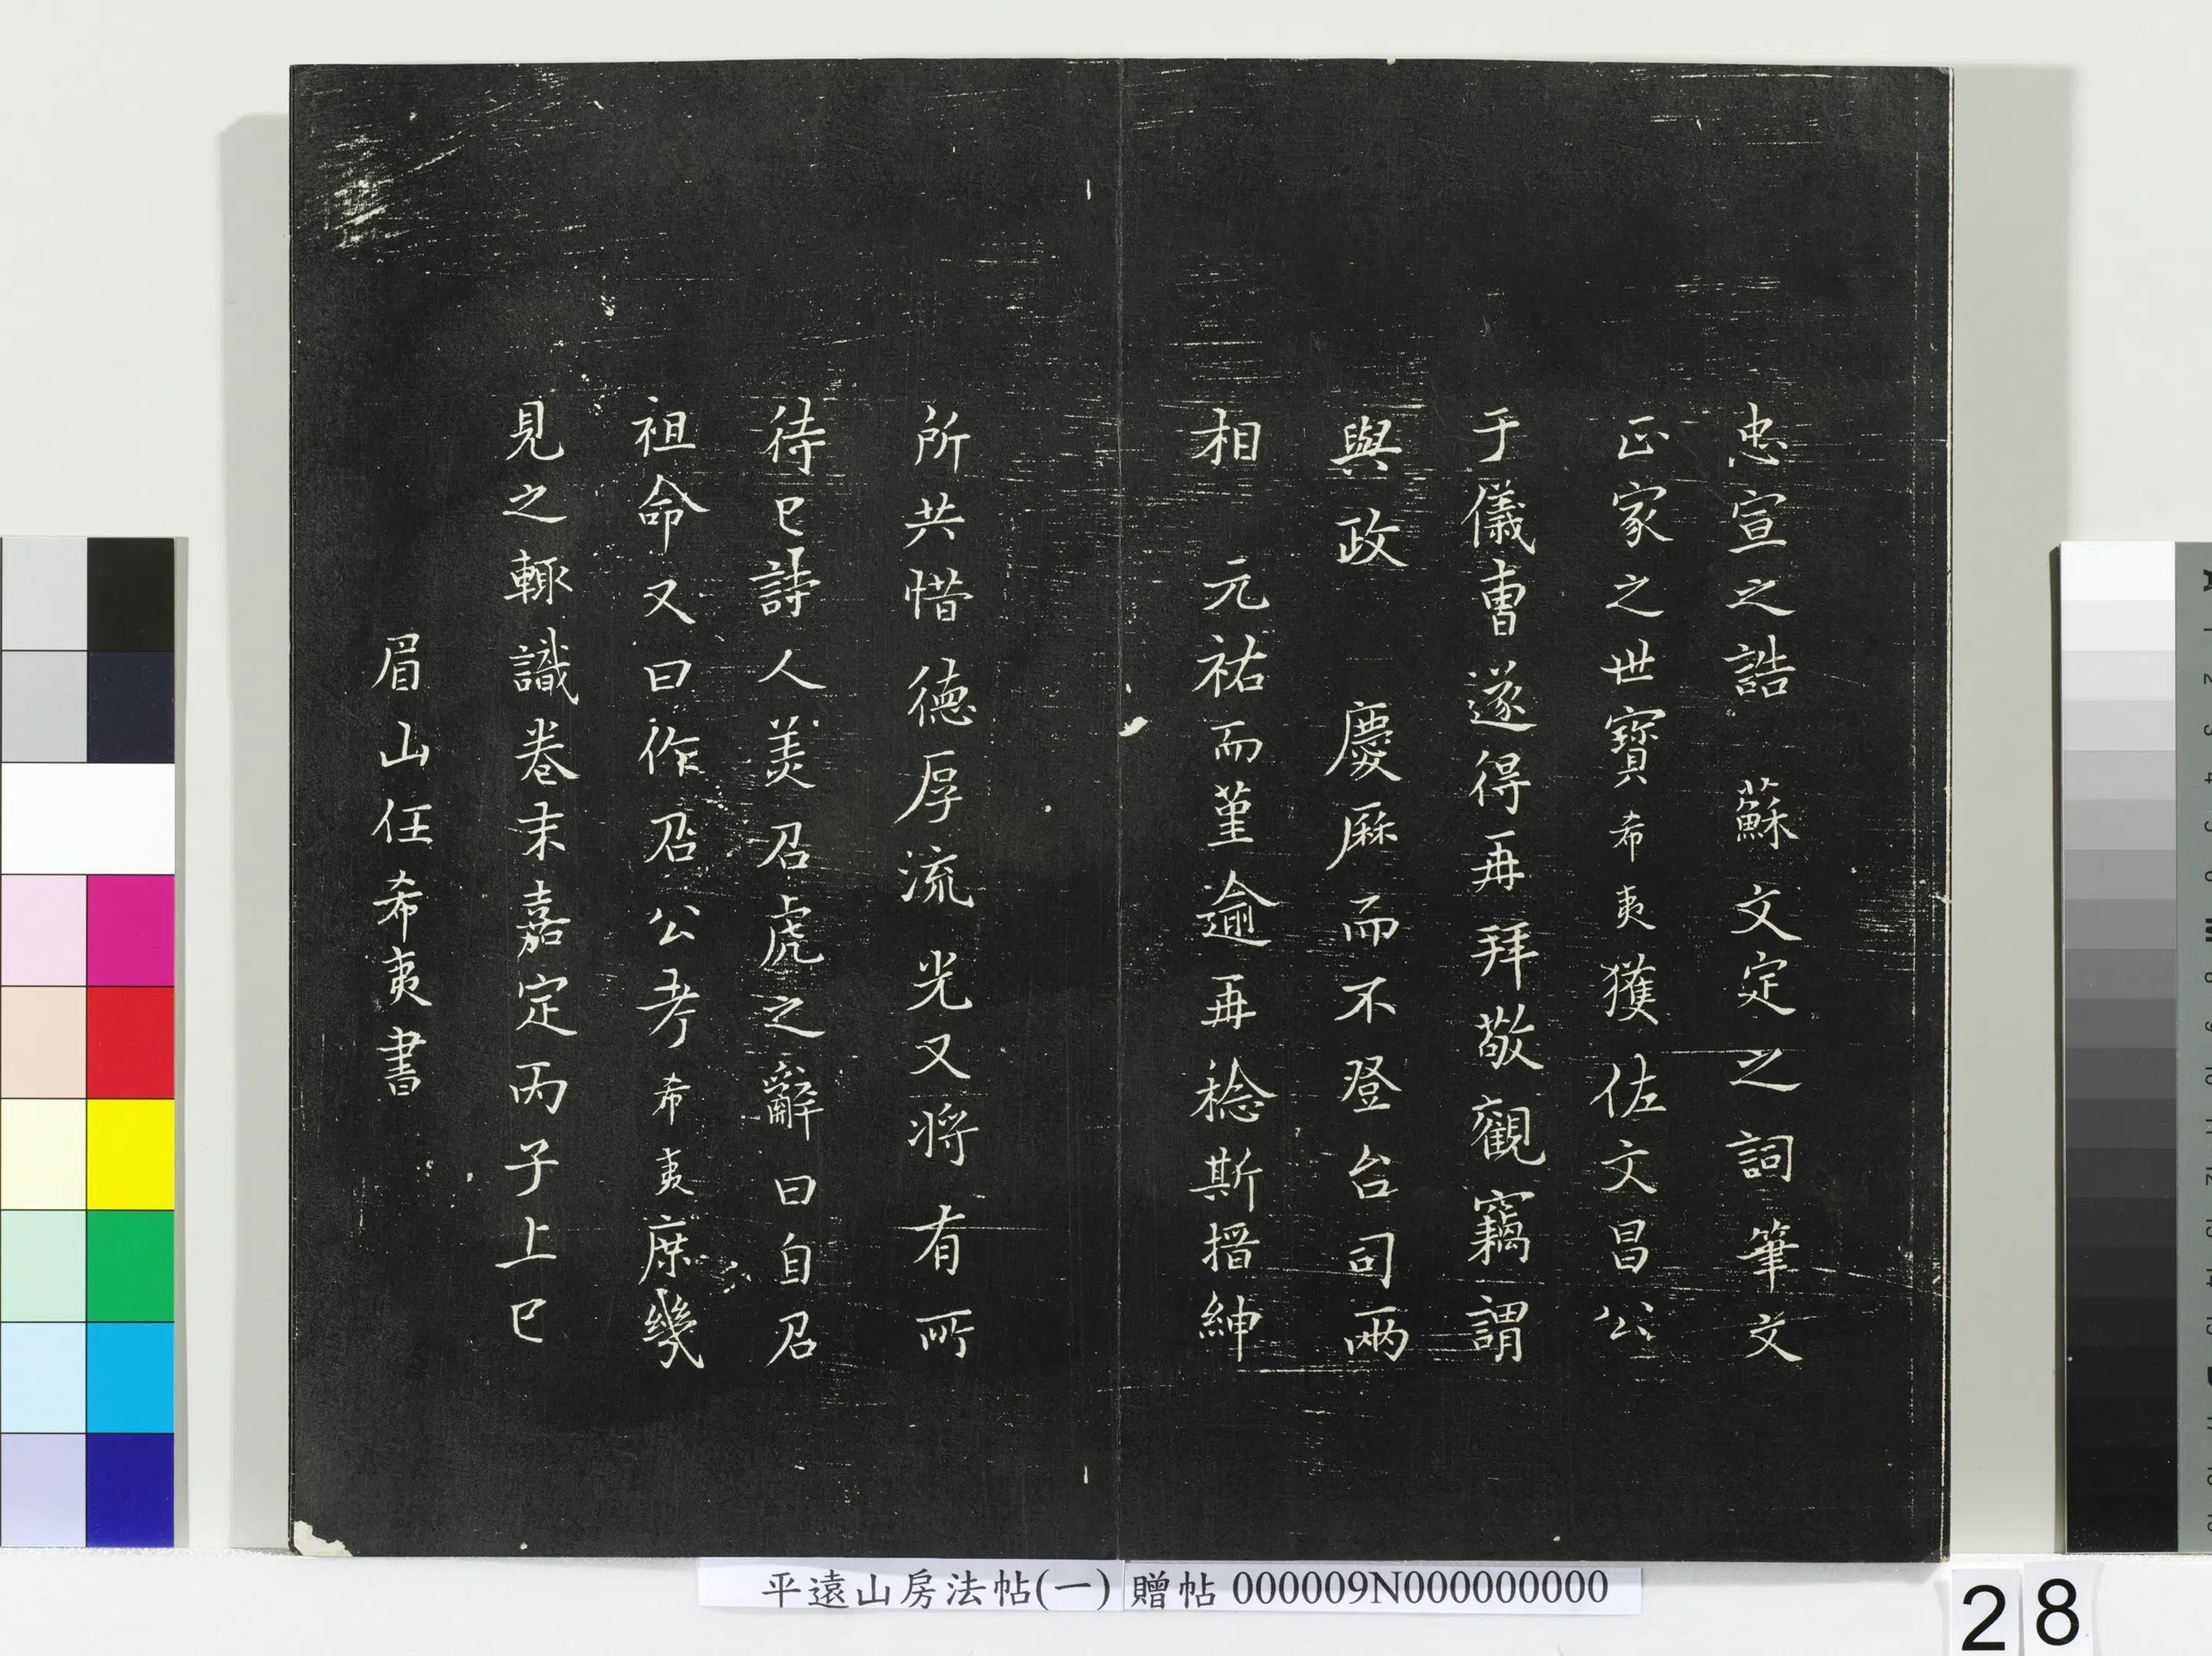 忠宣之誥　蘇文定之詞筆文
正家之世寶希夷獲佐文昌公
于儀曹遂得再拜敬觀竊謂
與政　慶厤而不登台司兩
相　元祐而堇逾再稔斯搢紳
所共惜德厚流光又將有所
待已詩人美召虎之辭曰自召
祖命又曰作召公考希夷庶幾
見之輒識卷末嘉定丙子上巳
眉山任希夷書
平遠山房法帖(一) 贈帖 000009N000000000
28